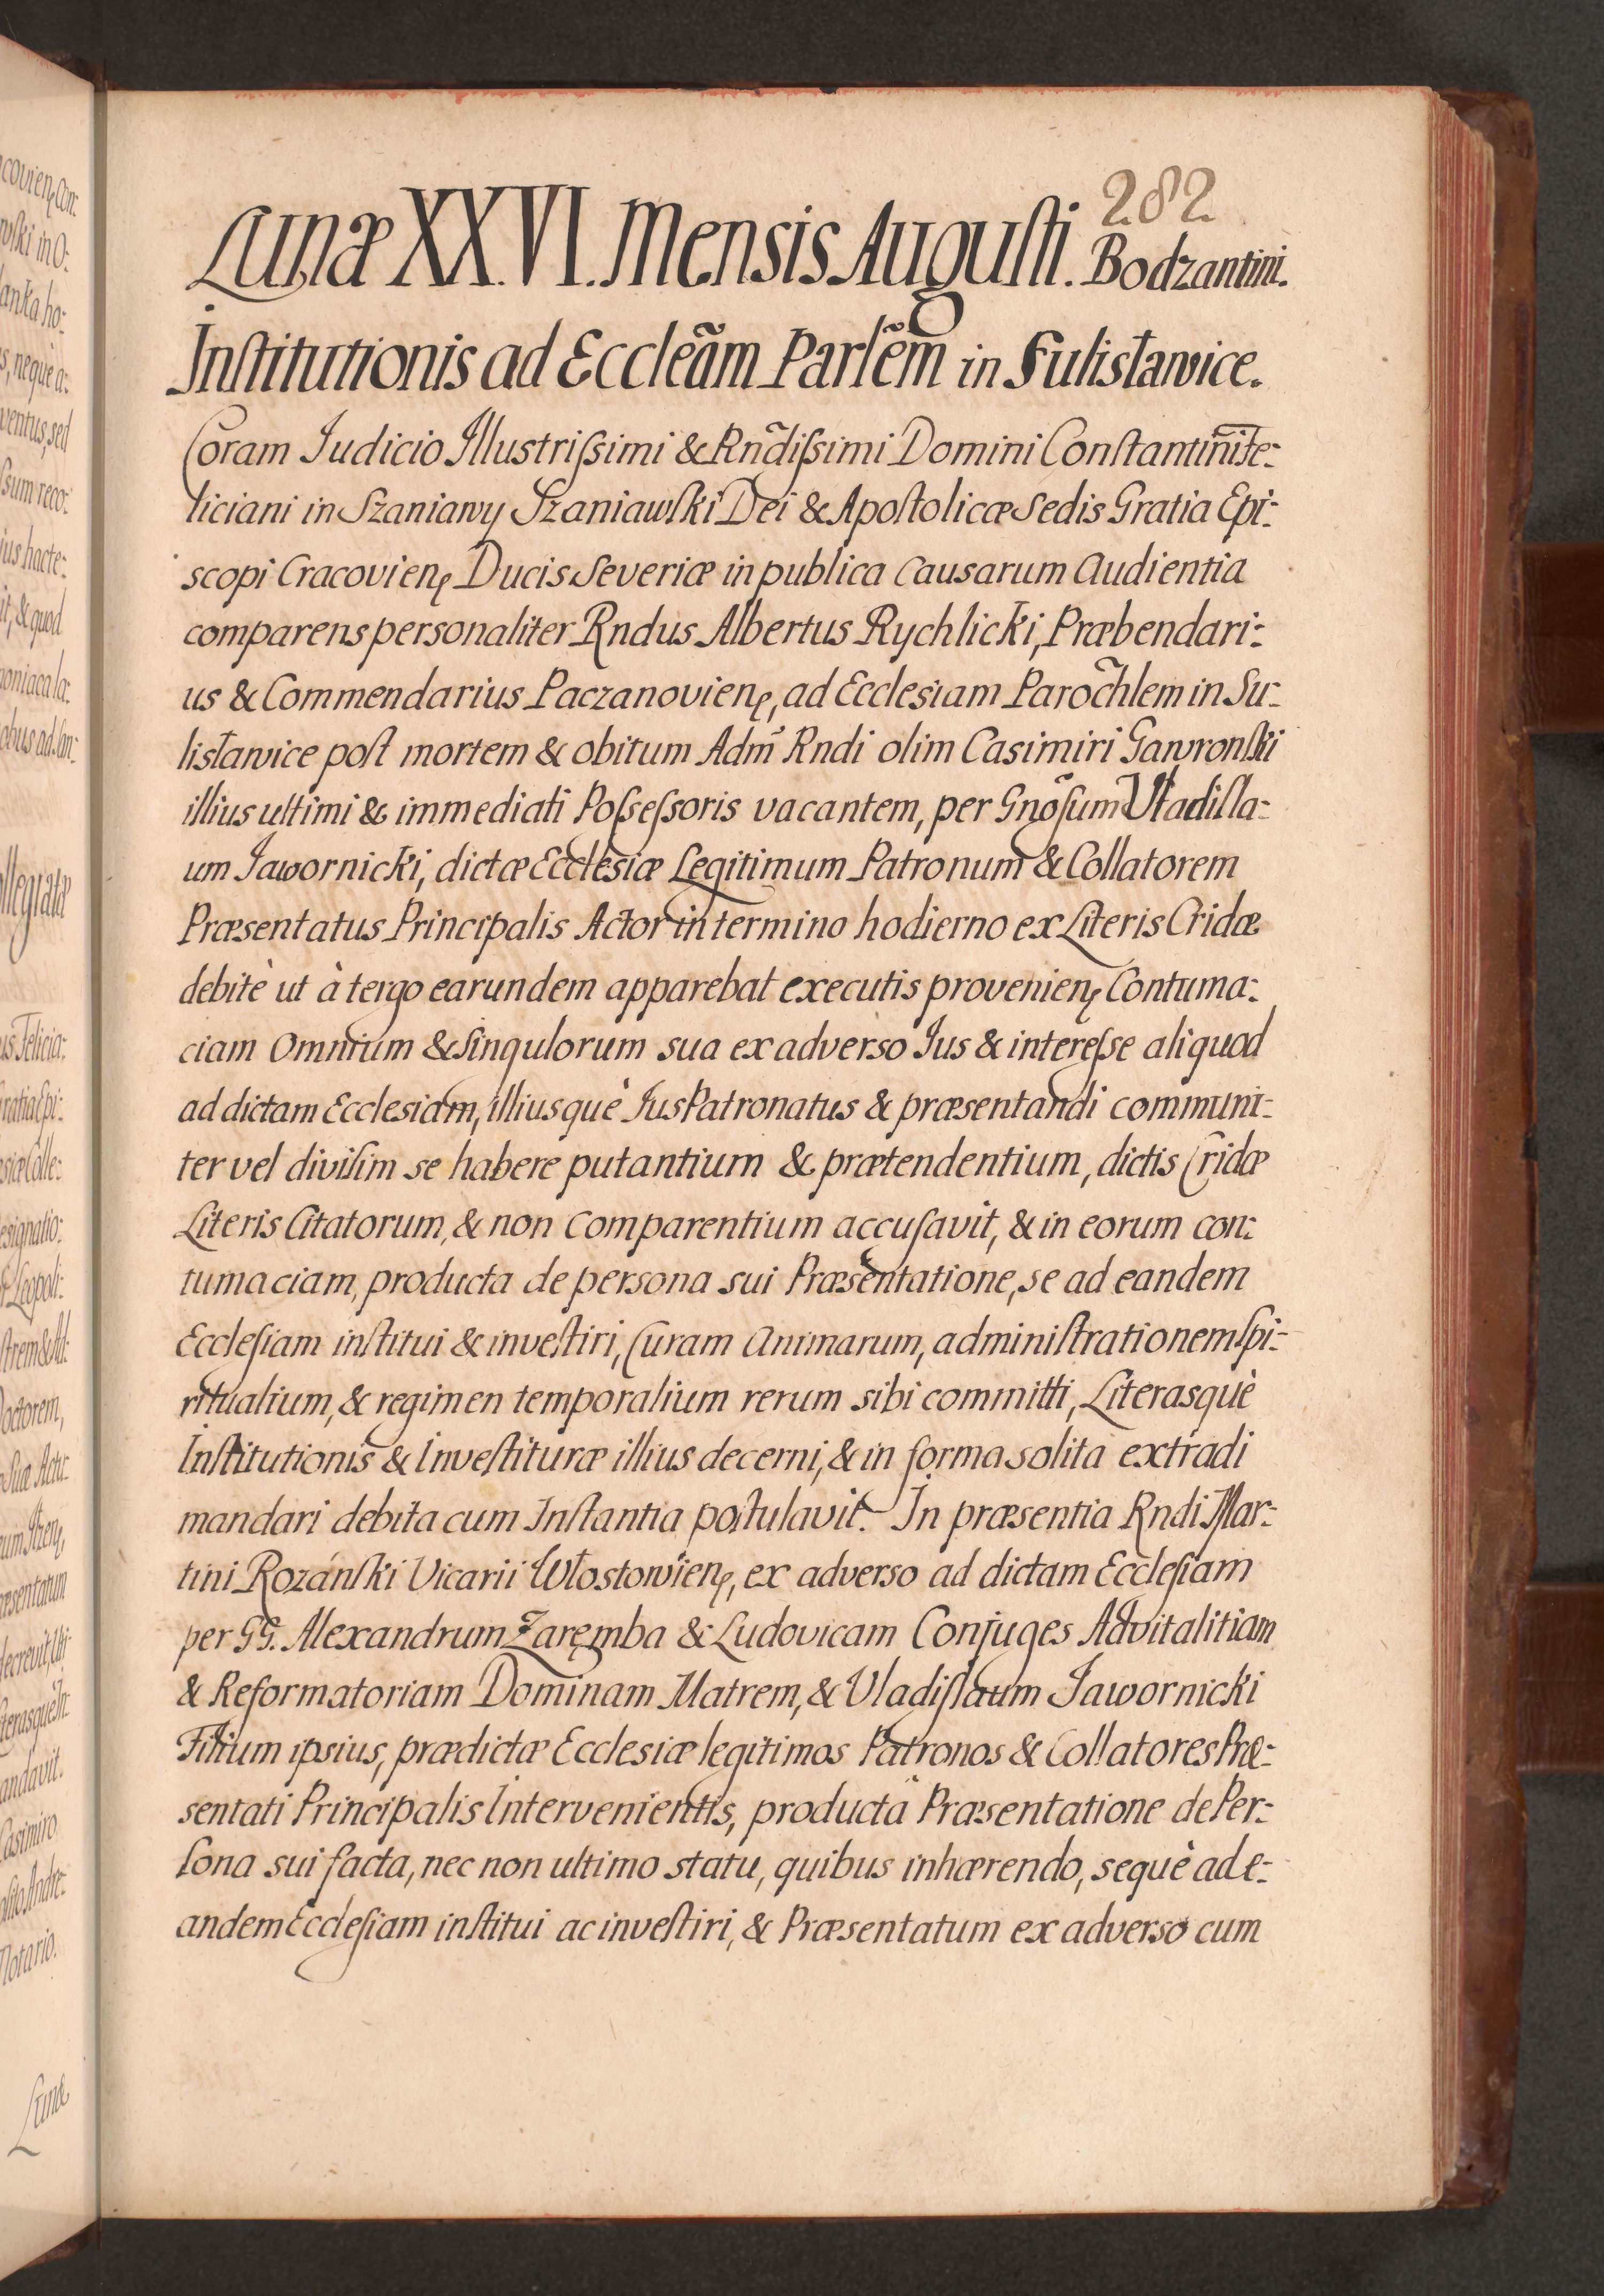 282
Lunæ XXVI. Mensis Augusti. Bodzantini.
Institutionis ad Eccleãm Parlẽm in Sulisławice.
Coram Judicio Illustrissimi & Rndissimi Domini Constantini Fe-
liciani in Szaniawy Szaniawski Dei & Apostolicæ Sedis Gratia Epi-
scopi Cracovien, Ducis Severiæ in publica Causarum Audientia
comparens personaliter Rndus Albertus Rychlicki, Præbendari-
us & Commendarius Paczanovien, ad Ecclesiam Parochlem in Su-
lisławice post mortem & obitum Adm Rndi olim Casimiri Gawronski
illius ultimi & immediati Possessoris vacantem, per Gnosum Vładisla-
um Jawornicki, dictæ Ecclesiæ Legitimum Patronum & Collatorem
Præsentatus Principalis Actor in termino hodierno ex Literis Cridæ
debitè ut à tergo earundem apparebat executis provenien, Contuma-
ciam Omnium & Singulorum sua ex adverso Jus & interesse aliquod
ad dictam Ecclesiam, illiusquè Jus Patronatus & præsentandi communi-
ter vel divisim se habere putantium & prætendentium, dictis Cridæ
Literis Citatorum, & non Comparentium accusavit, & in eorum con-
tumaciam, producta de persona sui Præsentatione, se ad eandem
Ecclesiam institui & investiri, Curam Animarum, administrationem spi-
ritualium, & regimen temporalium rerum sibi committi, Literasquè
Institutionis & Investituræ illius decerni, & in forma solita extradi
mandari debita cum Instantia postulavit. In præsentia Rndi Mar-
tini Rozánski Vicarii Włostowien, ex adverso ad dictam Ecclesiam
per GG. Alexandrum Zaręmba & Ludovicam Conjuges Advitalitiam
& Reformatoriam Dominam Matrem, & Vladislaum Jawornicki
Filium ipsius, prædictæ Ecclesiæ legitimos Patronos & Collatores Præ-
sentati Principalis Intervenientis, productâ Præsentatione de Per-
sona sui facta, nec non ultimo statu, quibus inhærendo, sequè ad e-
andem Ecclesiam institui ac investiri, & Præsentatum ex adverso cum